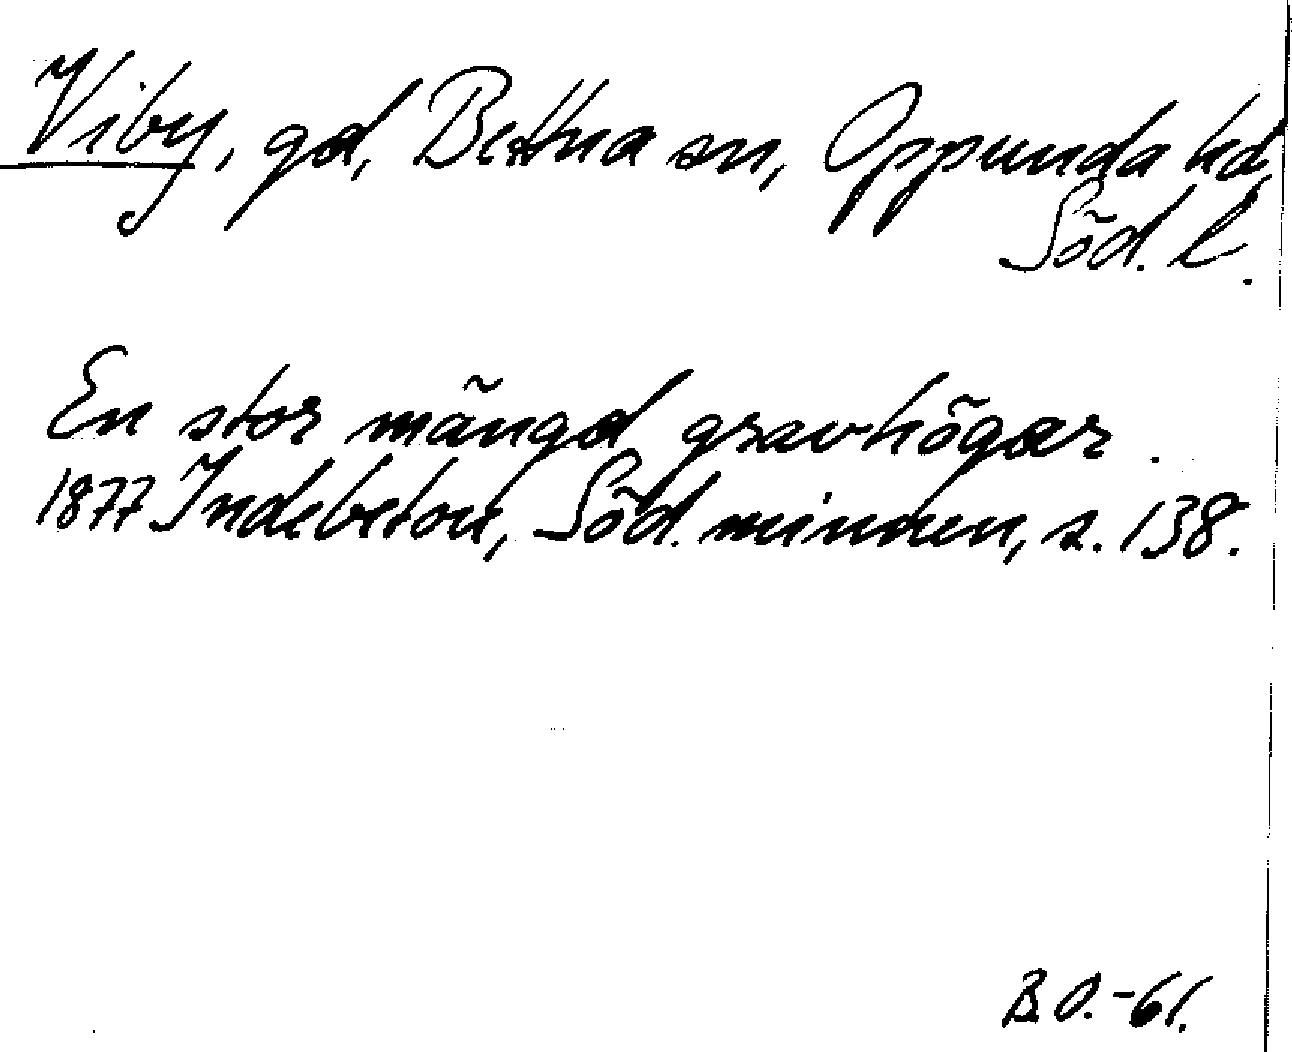 Viby, gd, Bettna sn, Oppunda hd,
Söd. l.
En stor mängd gravhögar.
1877 Indebetou, Söd. minnen, s. 138.
B.O.-61.